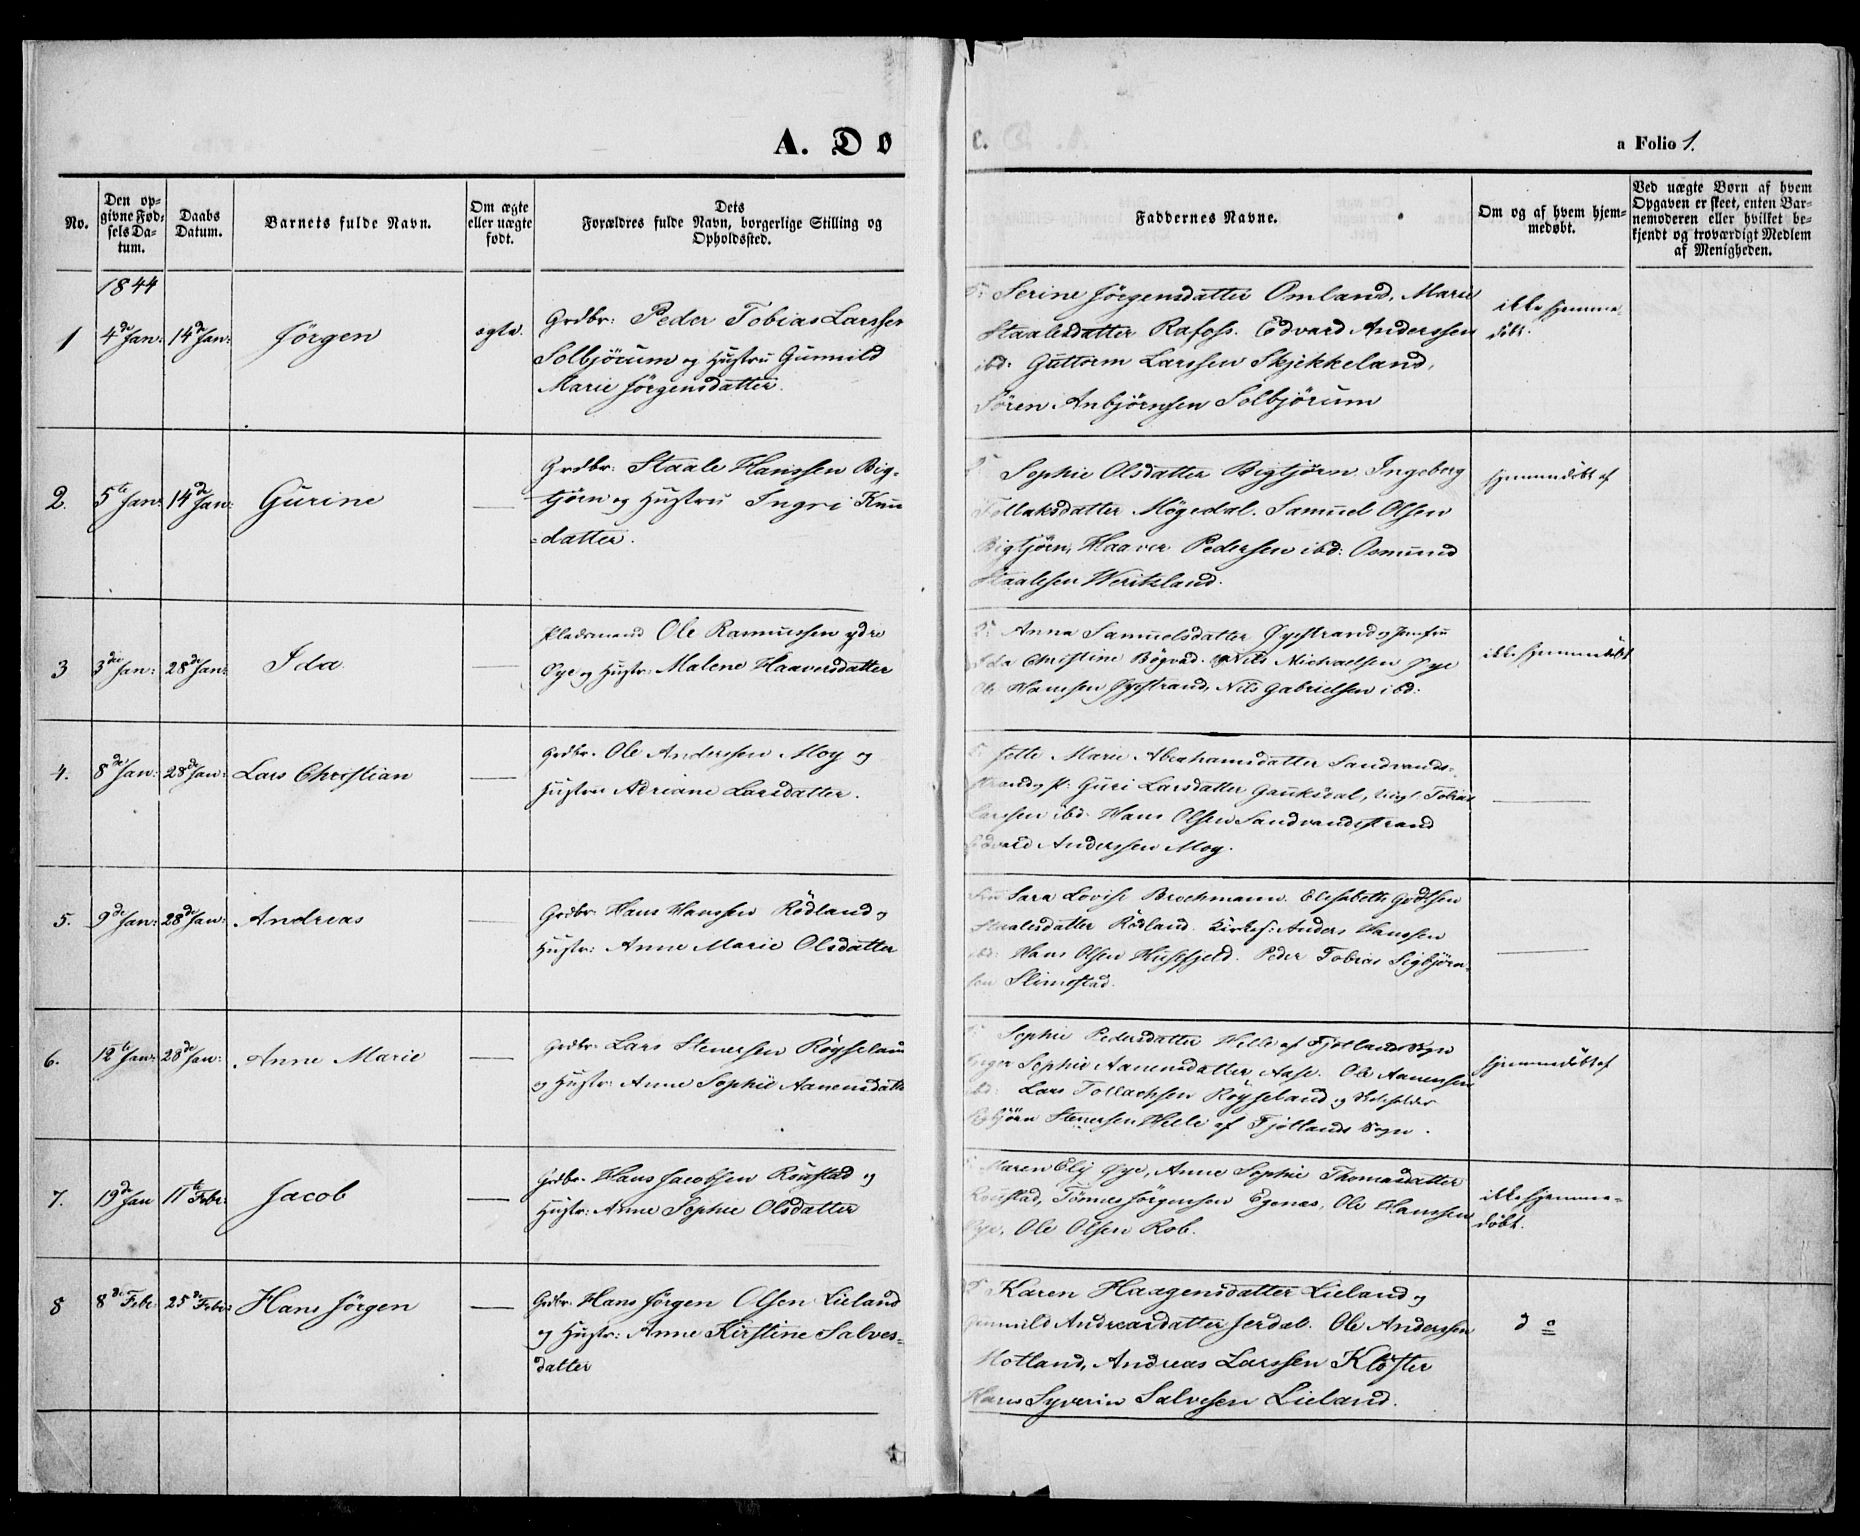 A. Dø
e.
a Folio 1.
No.
Den op-
givne Fød-
sels Da-
tum.
Daabs
Datum.
Barnets fulde Navn.
Om ægte
eller uægte
født.
Dets
Forældres fulde Navn, borgerlige Stilling og
Opholdssted.
Faddernes Navne.
Om og af hvem hjem-
medøbt.
Ved uægte Børn af hvem
Opgaven er skeet, enten Bar-
nemoderen eller hvilket be-
kjendt og troværdigt Medlem
af Menigheden.
1844
1
4de Jan:
14de Jan:
Jørgen
ægte.
Grdbr: Peder Tobias Larssen
Solbjørum og Hustru Gunnild
Marie Jørgensdatter.
Serine Jørgensdatter Omland, Marie
Staalesdatter Rafoss. Edvard Anderssen
ibd: Guttorm Larssen Skjekkeland,
Søren Anbjørnsen Solbjørum
ikke hjemme-
døbt.
2.
5te Jan:
14de Jan:
Gurine
Grdbr: Staale Hanssen Big-
tjørn og Hustru Ingri Knu
datter.
Sophie Olsdatter Bigtjørn Ingeborg
Tollaksdatter Møgedal. Samuel Olsen
Bigtjørn, Haaver Pedersen ibd: Osmund
Staalesen
hjemmedøbt af
3
3die Jan:
28de Jan:
Ida
Pladsmand Ole Rasmussen ydre
Øye og Hustr: Malene Haaversdatter
Anna Samuelsdatter Øyestrand og Jomfru
Ida Christine Bøgvad. og Nils Michaelsen Øye
Ole Hanssen Øyestrand, Nils Gabrielsen ibd:
ikke hjemmedøbt
4.
8de Jan:
28de Jan:
Lars Christian
Grdbr. Ole Anderssen Moy og
Hustru Adriane Larsdatter.
Jette Marie Abrahamsdatter Sandvands-
strand, p: Guri Larsdatter Gauksdal, Ungk. Tobias
Larssen ibd. Hans Olsen Sandvandsstrand
Edvard Anderssen Moy.
5.
9de Jan:
28de Jan:
Andreas
Grdbr. Hans Hanssen Rødland og
Hustr: Anne Marie Olsdatter
Sara Lovise Brochmann. Elisabeth Godtsen
Staalesdatter Rødland. Kirkes: Anders Hanssen
ibd: Hans Olsen Peder Tobias Sigbjørn-
sen Slimestad.
6.
12te Jan:
28de Jan:
Anne Marie
Grdbr. Lars Stenersen Røyseland
og Hustr: Anne Sophie Aanensdatter
Sophie Pedersdatter Helle af Fjotlands Sogn
Inger Sophie Aanensdatter Aase. Ole Aanensen
ibd: Lars Tollachsen Røyseland og
Sigbjørn Stenersen Helle af Fjotlands Sogn.
hjemmedøbt af
7.
19de Jan
11te Febr:
Jacob
Grdbr. Hans Jacobsen Rørstad og
Hustr: Anne Sophie Olsdatter
Maren Elij Øye, Anne Sophie Thomasdatter
Rørstad, Tønnes Jørgensen Egenæs, Ole Hanssen
Øye, Ole Olsen Rob.
ikke hjemme-
døbt.
8
8de Febr:
25de Febr:
Hans Jørgen
Grdbr. Hans Jørgen Olsen Lieland
og Hustr: Anne Kirstine Salves-
datter
Karen Haagensdatter Lieland og
Gunnild Andreasdatter Jerdal. Ole Anderssen
Hotland, Andreas Larssen Kloster
Hans Syverin Salvesen Lieland.
do